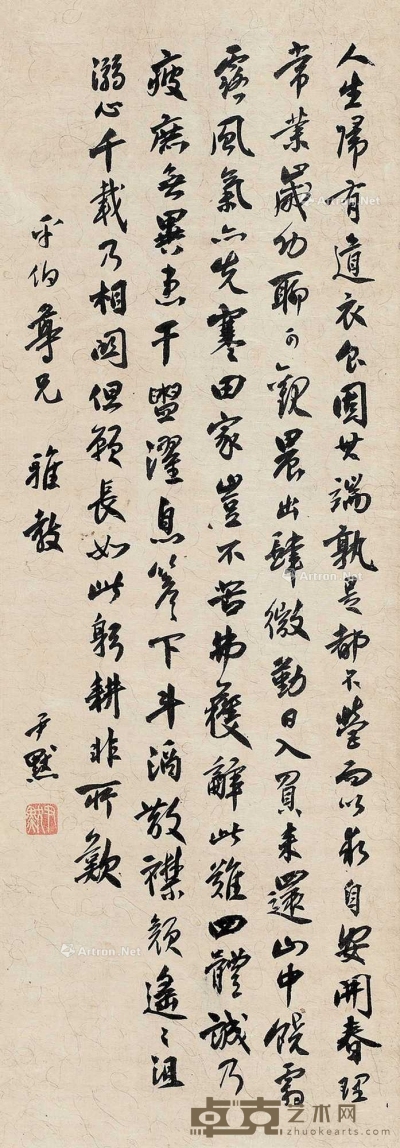 人生歸有道衣食固其端孰是都不營而以求自安開春理
常業歲功聊可觀晨出肆微勤日入負耒還山中饒霜
露風氣亦先寒田家豈不苦弗獲辭此難四體誠乃
疲庶無異患干盥濯息簷下斗酒散襟顏遙〻沮
溺心千載乃相關但願長如此躬耕非所歎
平伯尊兄 雅教
尹默
Artron.Net
Artron.Net
Artron.Net
Artron.Net
卓克艺术网
zhuokearts.com